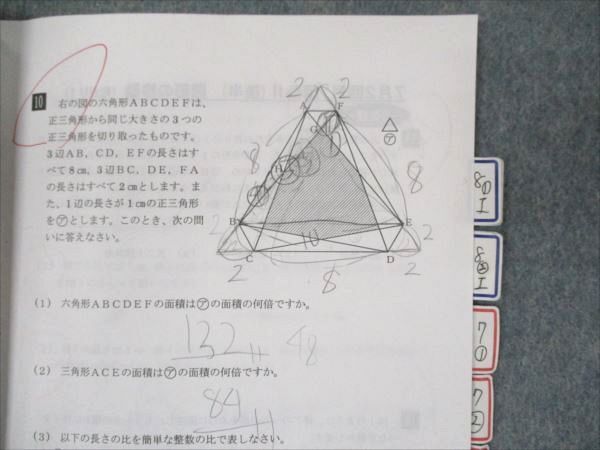 10 右の図の六角形ABCDEFは、
正三角形から同じ大きさの3つの
正三角形を切り取ったものです。
3辺AB, CD, EFの長さはす
べて8㎝, 3辺BC, DE, FA
の長さはすべて2㎝とします。ま
た, 1辺の長さが1㎝の正三角形
を㋐とします。このとき、次の問
いに答えなさい。
2 2
A F
G
㋐
8 H 8
8①
I
B E
2 10 2
8②
I
C D
2 8 2
(1) 六角形ABCDEFの面積は㋐の面積の何倍ですか。
7
①
132 48
(2) 三角形ACEの面積は㋐の面積の何倍ですか。
7
②
84
(3) 以下の長さの比を簡単な整数の比で表しなさい。